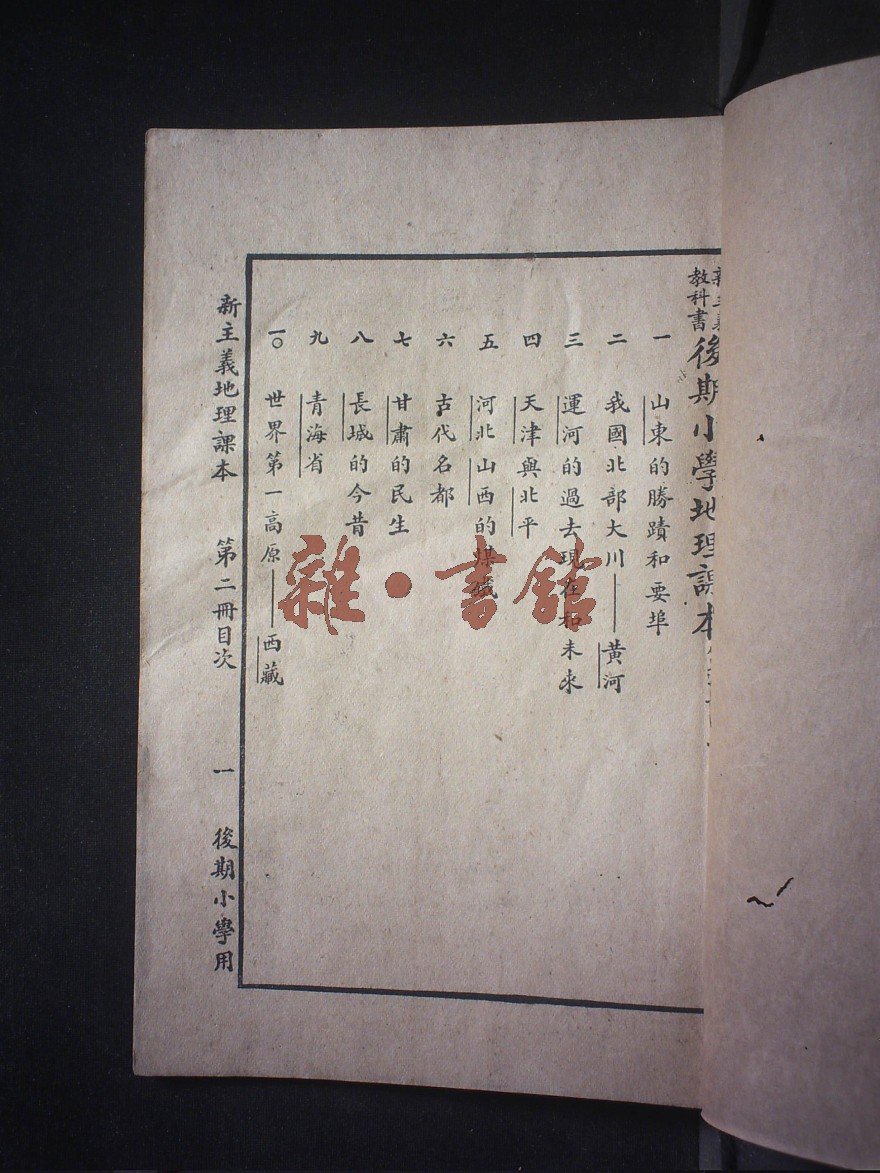 新主義
教科書
後期小學地理課本
一 山東的勝蹟和要埠
二 我國北部大川——黃河
三 運河的過去現在和未來
四 天津與北平
五 河北山西的煤鐵
六 古代名都
七 甘肅的民生
八 長城的今昔
九 青海省
一〇 世界第一高原——西藏
新主義地理課本 第二冊目次 一 後期小學用
雜·書館